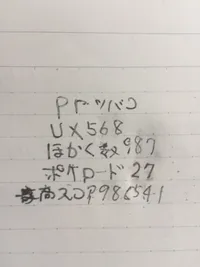 Pゲツバコ
UX568
ほかく数987
ポケロード27
最高スコア986541